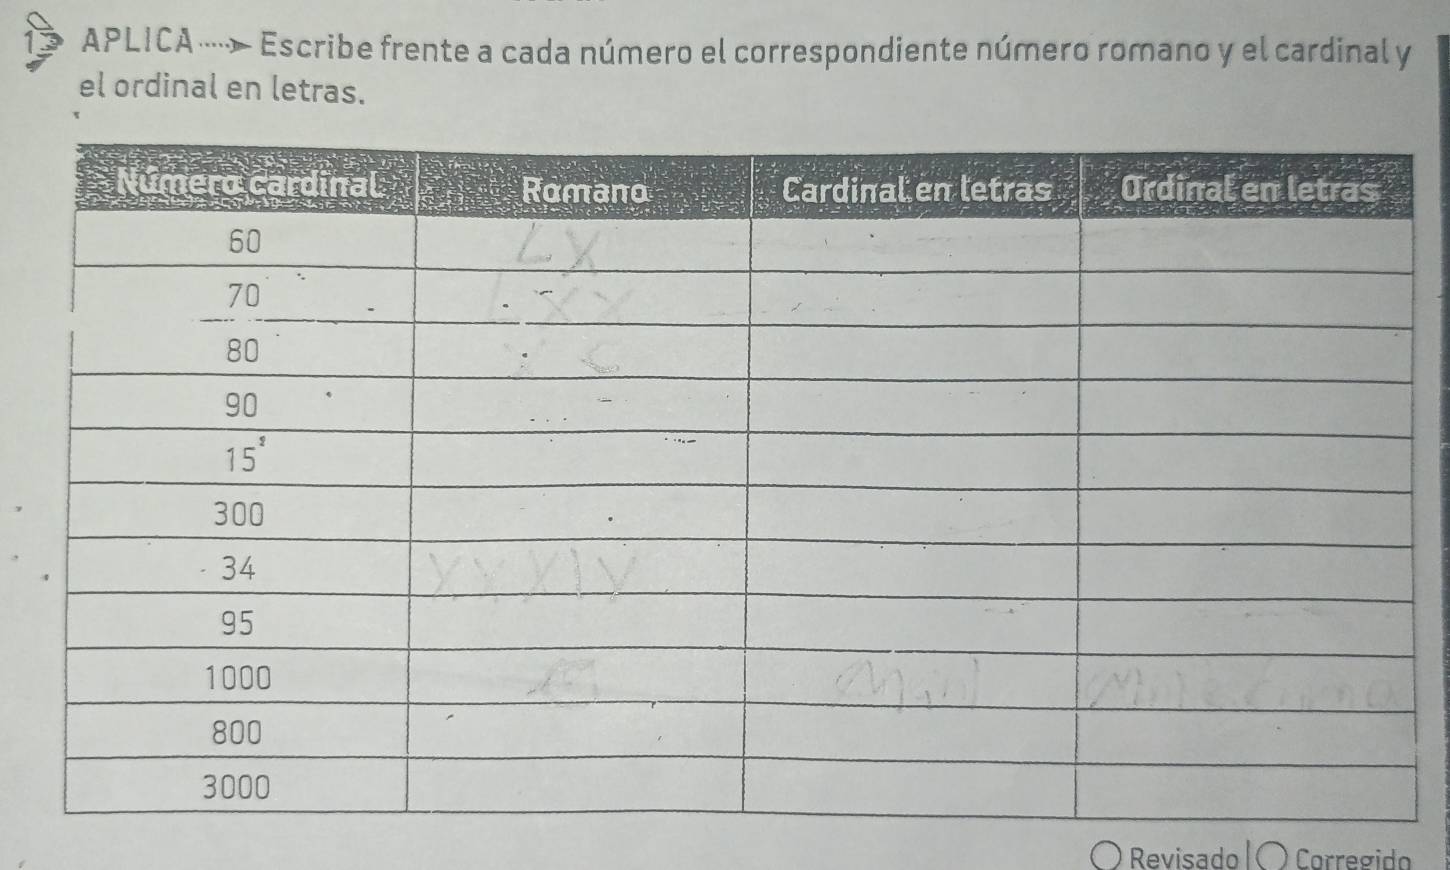 APLICA ····➤ Escribe frente a cada número el correspondiente número romano y el cardinal y
el ordinal en letras.
Número cardinal Romano Cardinal en letras Ordinal en letras
60 LX
70 LXX
80
90
15
300
34 XXXIV
95
1000
800
3000
Revisado | Corregido